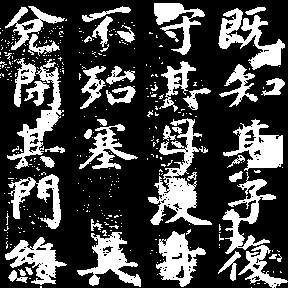 既知其子復
守其母没身
不殆塞其
兌閉其門終